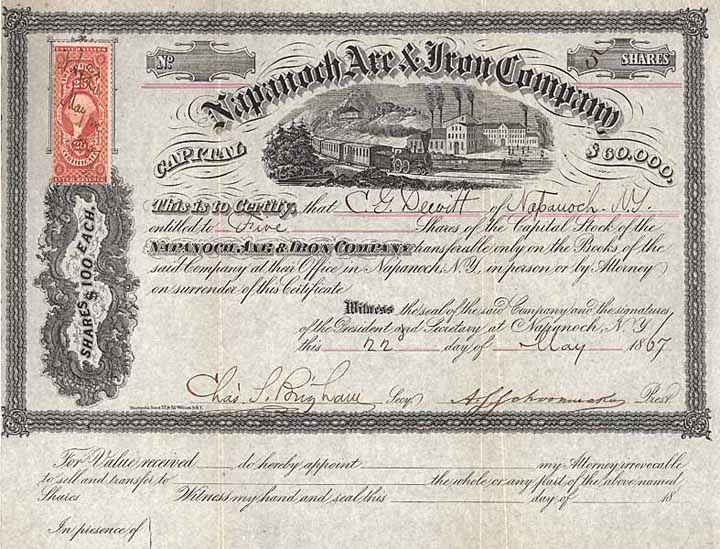 No.
5 SHARES
Napanoch Axe & Iron Company
CAPITAL $60.000,
25 25
SHARES $100 EACH.
This is to Certify, that C. G. Dewitt of Napanoch. N.Y.
entitled to Five Shares of the Capital Stock of the
NAPANOCH AXE & IRON COMPANY transferable only on the Books of the
said Company at their Office in Napanoch, N.Y. in person or by Attorney
on surrender of this Certificate
Witness the seal of the said Company and the signatures
of the President and Secretary at Napanoch, N.Y.
this 22 day of May 1867
Chas. S. Brigham Secy. Prest
For Value received do hereby appoint my Attorney irrevocable
to sell and transfer to the whole or any part of the above named
Shares Witness my hand and seal this day of 18
In presence of